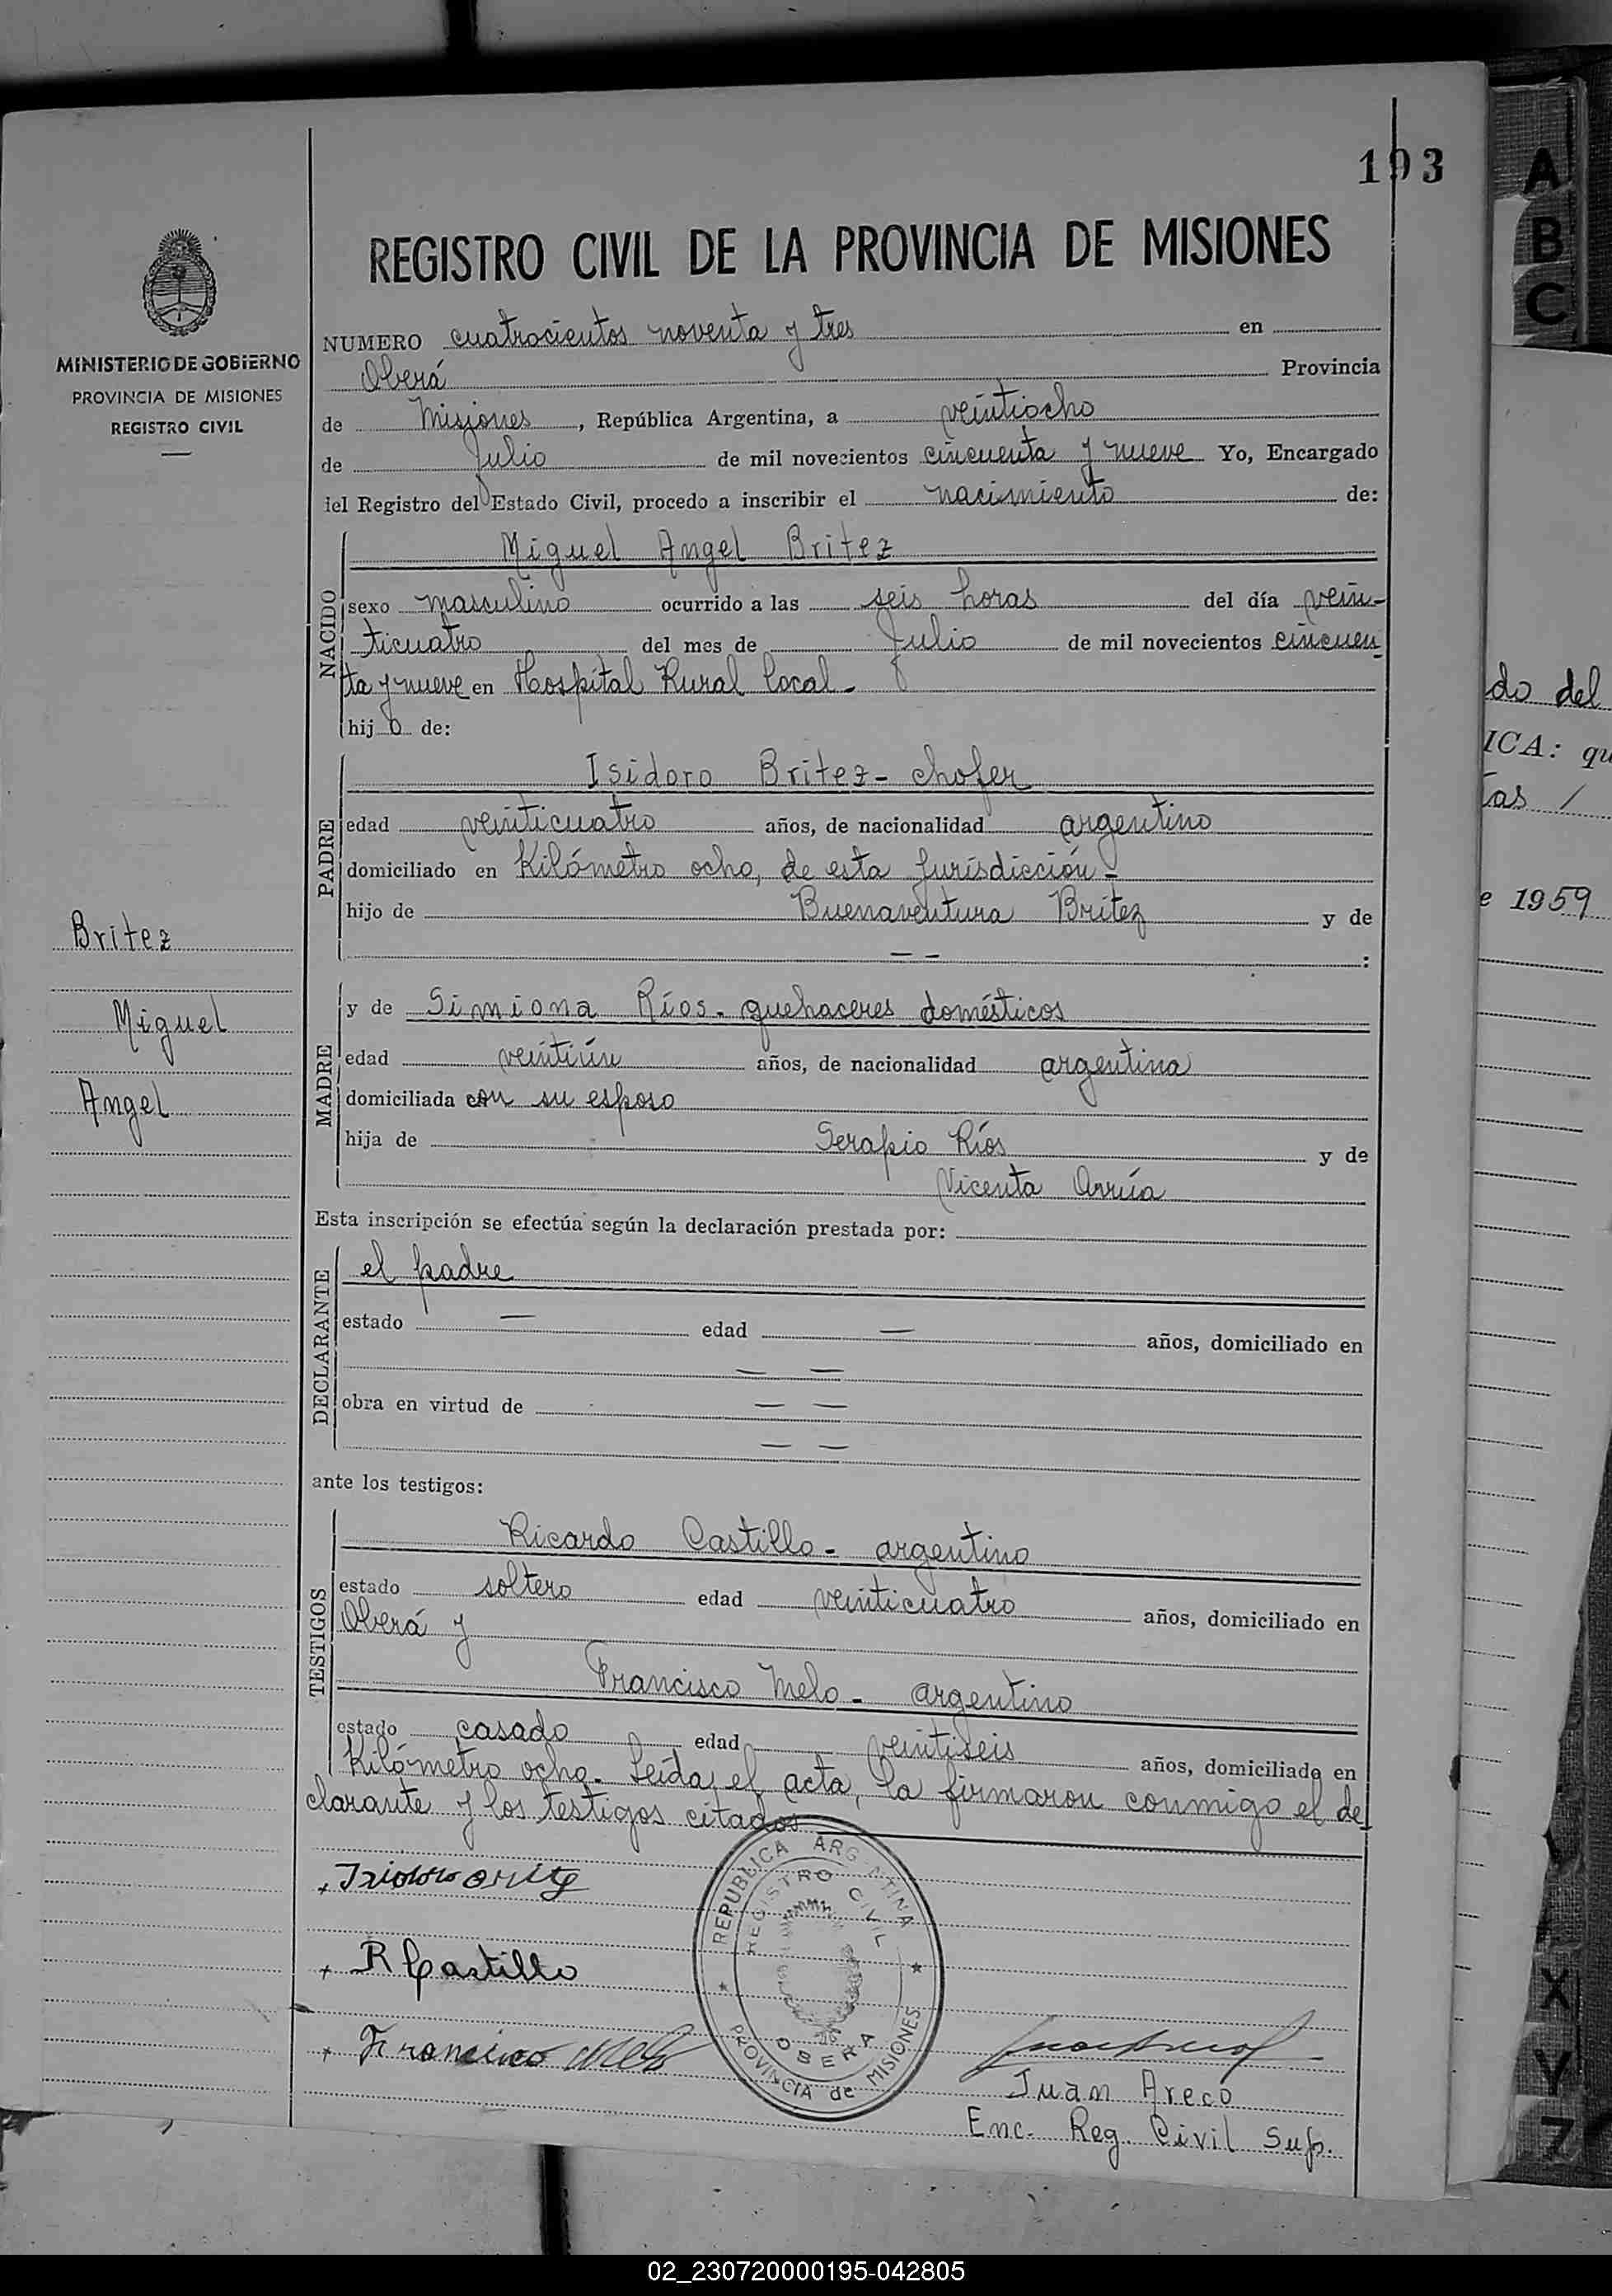 193
REGISTRO CIVIL DE LA PROVINCIA DE MISIONES
MINISTERIO DE GOBIERNO
PROVINCIA DE MISIONES
REGISTRO CIVIL
NUMERO cuatrocientos noventa y tres en
Oberá Provincia
de Misiones, República Argentina, a veintiocho
de Julio de mil novecientos cincuenta y nueve Yo, Encargado
iel Registro del Estado Civil, procedo a inscribir el nacimiento de:
NACIDO
Miguel Angel Britez
sexo masculino ocurrido a las seis horas del día vein-
ticuatro del mes de Julio de mil novecientos cincuen-
ta y nueve en Hospital Rural local.-
hijo de:
PADRE
Isidoro Britez- chofer
edad veinticuatro años, de nacionalidad argentino
domiciliado en Kilómetro ocho, de esta Jurisdicción-
hijo de Buenaventura Britez y de
— — :
Britez
Miguel
Angel
MADRE
y de Simiona Ríos. quehaceres domésticos
edad veintiún años, de nacionalidad argentina
domiciliada con su esposo
hija de Serapio Ríos y de
Vicenta Arrúa
Esta inscripción se efectúa según la declaración prestada por:
DECLARANTE
el padre
estado — edad — años, domiciliado en
— —
obra en virtud de — —
— —
ante los testigos:
TESTIGOS
Ricardo Castillo- argentino
estado soltero edad veinticuatro años, domiciliado en
Oberá y
Francisco Melo- argentino
estado casado edad veintiseis años, domiciliado en
Kilómetro ocho. Leída el acta, la firmaron conmigo el de-
clarante y los testigos citados
REPUBLICA ARGENTINA
REGISTRO CIVIL
OBERA
PROVINCIA de MISIONES
+ R Castillo
+ Francisco Melo
Juan Areco
Enc. Reg. Civil Sup.
do del
ICA: qu
tas /
e 1959
A
B
C
X
Y
Z
02_230720000195-042805